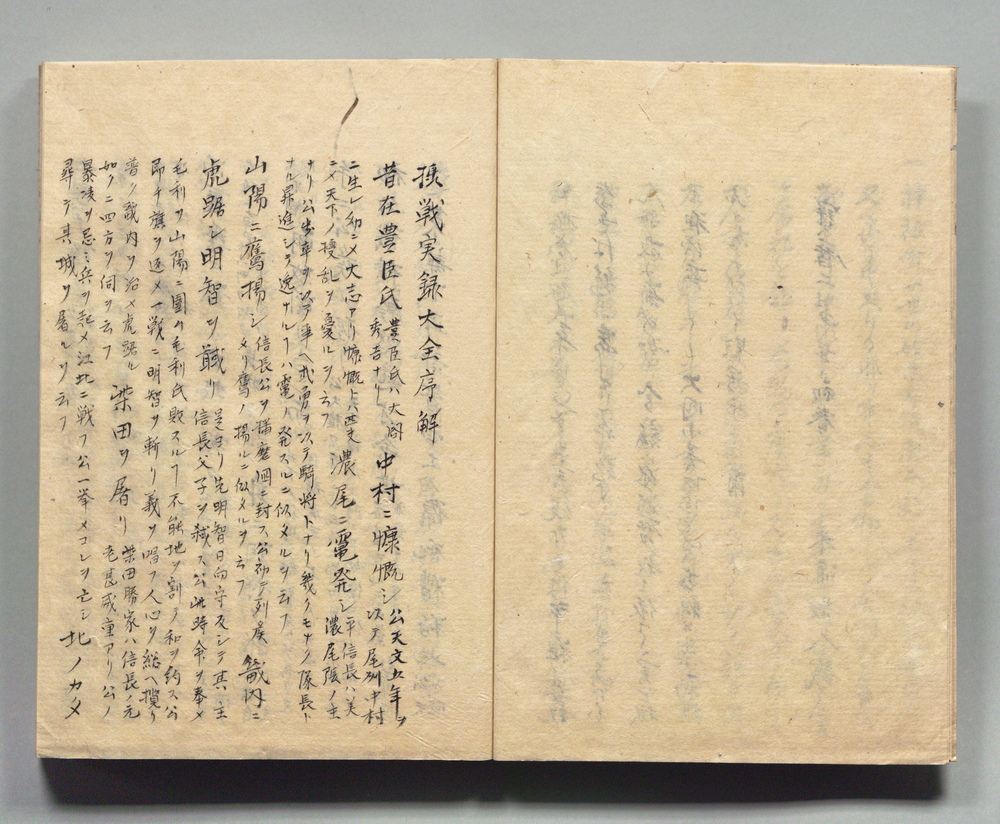 損戦実録大全序解
昔在豊臣氏 豊臣氏ハ大閤秀吉ナリ 中村ニ慷慨シ 公天文五年ヲ以テ尾州中村
ニ生レ幼ニメ大志アリ慷慨トハ 濃尾ニ電発シ 平信長ハ美濃尾張ノ主
ニメ天下ノ擾乱ヲ憂ルヲ云フ
ナリ公歩卒ヲ以テ事ヘ武勇ヲ以テ騎将トナリ幾クモナク隊長ト
ナル昇進シテ逸ナルヿハ電ノ発スルニ似タルヲ云フ
山陽ニ奮揚シ 信長公ヲ播磨国ニ封ス公初テ列侯 畿内ニ
メリ奮ノ揚ルニ似タルヲ云フ
虎踞シ明智ヲ馘リ 是ヨリ先明智日向守反シテ其主
信長父子ヲ弑ス公此時命ヲ奉メ
毛利ヲ山陽ニ囲ム毛利氏敗スルヿ不能地ヲ割テ和ヲ約ス公
即チ旗ヲ返メ一戦ニ明智ヲ斬リ義ヲ唱フ人心ヲ総ヘ攬リ
普ク畿内ヲ治メ虎踞ル 柴田ヲ屠リ 柴田勝家ハ信長ノ元
如クニ四方ヲ伺ヲ云フ 老甚威重アリ公ノ
暴凌ヲ忌ミ兵ヲ起メ江北ニ戦フ公一挙メコレヲ亡シ 北ノカタ
尋テ其城ヲ屠ルヲ云フ